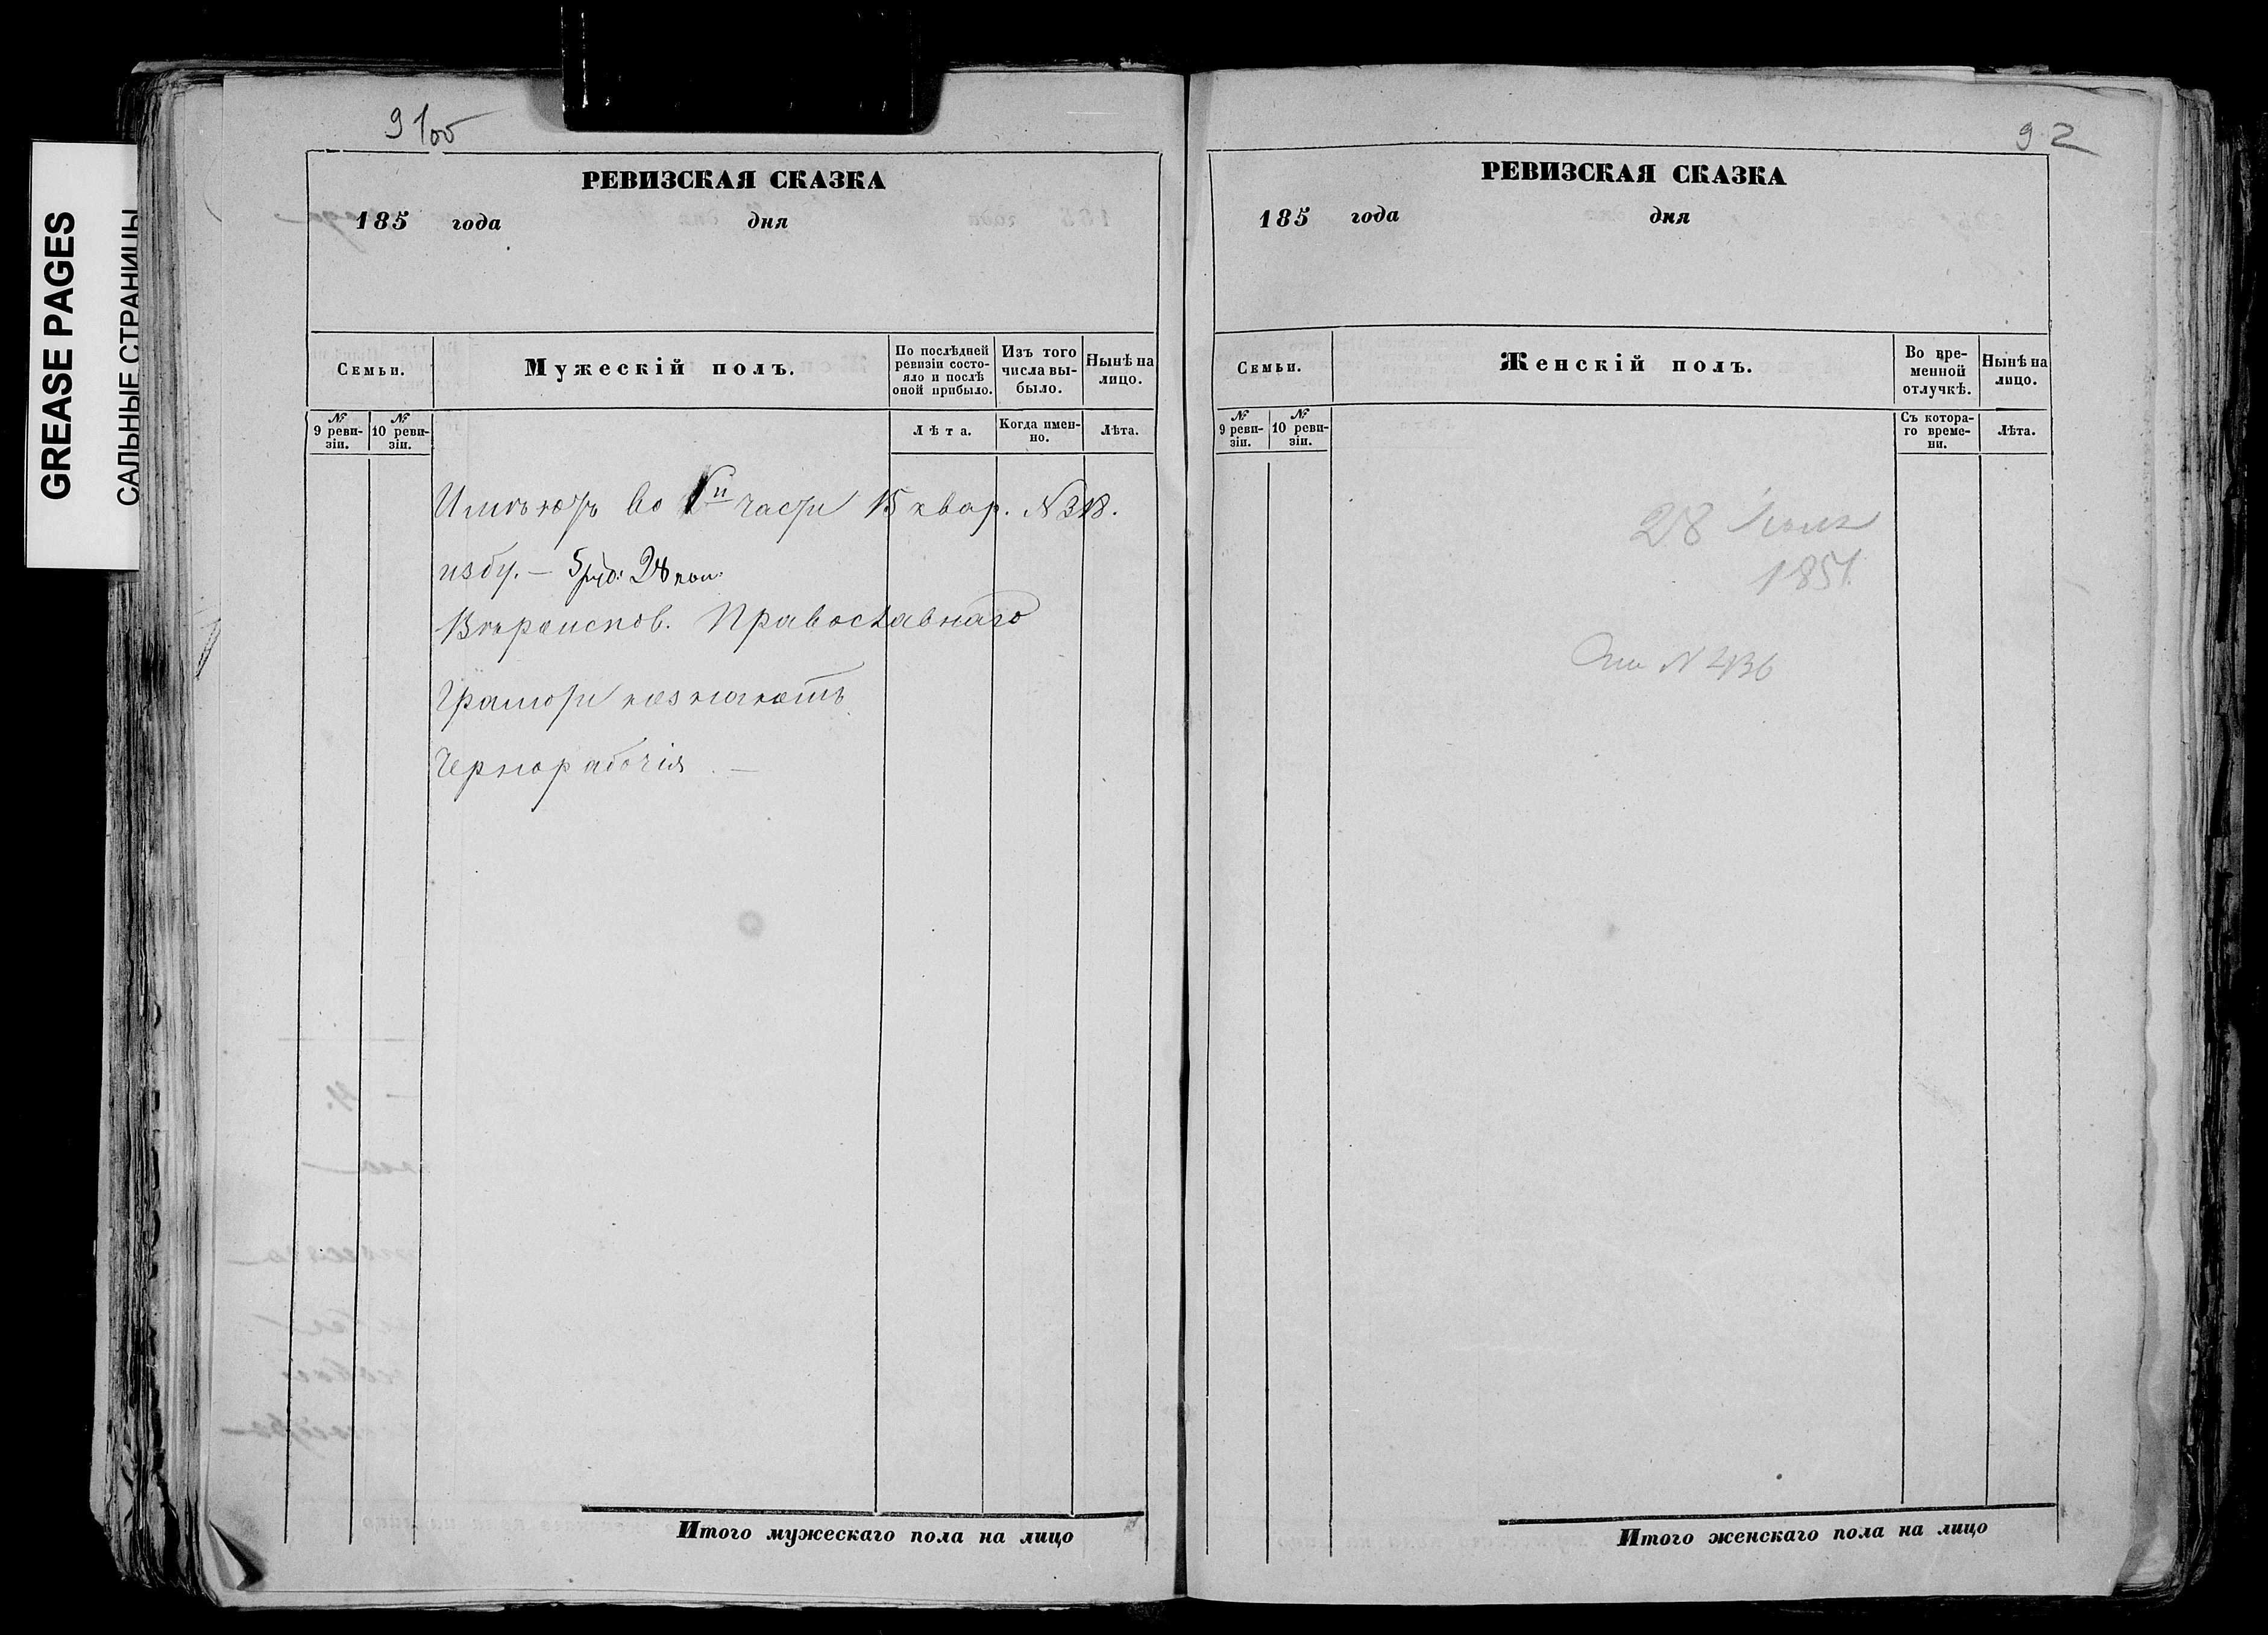 GREASE PAGES
САЛЬНЫЕ СТРАНИЦЫ
91об
РЕВИЗСКАЯ СКАЗКА
185 года дня
Семьи.
Мужескій полъ.
По послѣдней ревизіи состояло и послѣ оной прибыло.
Изъ того числа выбыло.
Нынѣ на лицо.
№ 9 ревизіи.
№ 10 ревизіи.
Лѣта.
Когда именно.
Лѣта.
Имѣютъ во части 15 квар. N 318.
избу. — 5 руб: 28 коп.
Вѣроиспов. Православнаго
Грамоти незнаютъ
Чернорабочія. —
Итого мужескаго пола на лицо
92
РЕВИЗСКАЯ СКАЗКА
185 года дня
Семьи.
Женскій полъ.
Во временной отлучкѣ.
Нынѣ на лицо.
№ 9 ревизіи.
№ 10 ревизіи.
Съ котораго времени.
Лѣта.
28
185
N 436
Итого женскаго пола на лицо